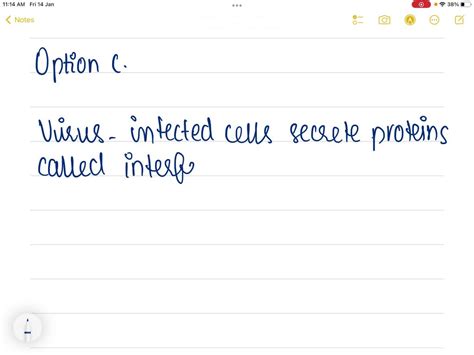 11:14 AM Fri 14 Jan
38%
Notes
Option C.
Virus - infected cells secrete proteins
called interf